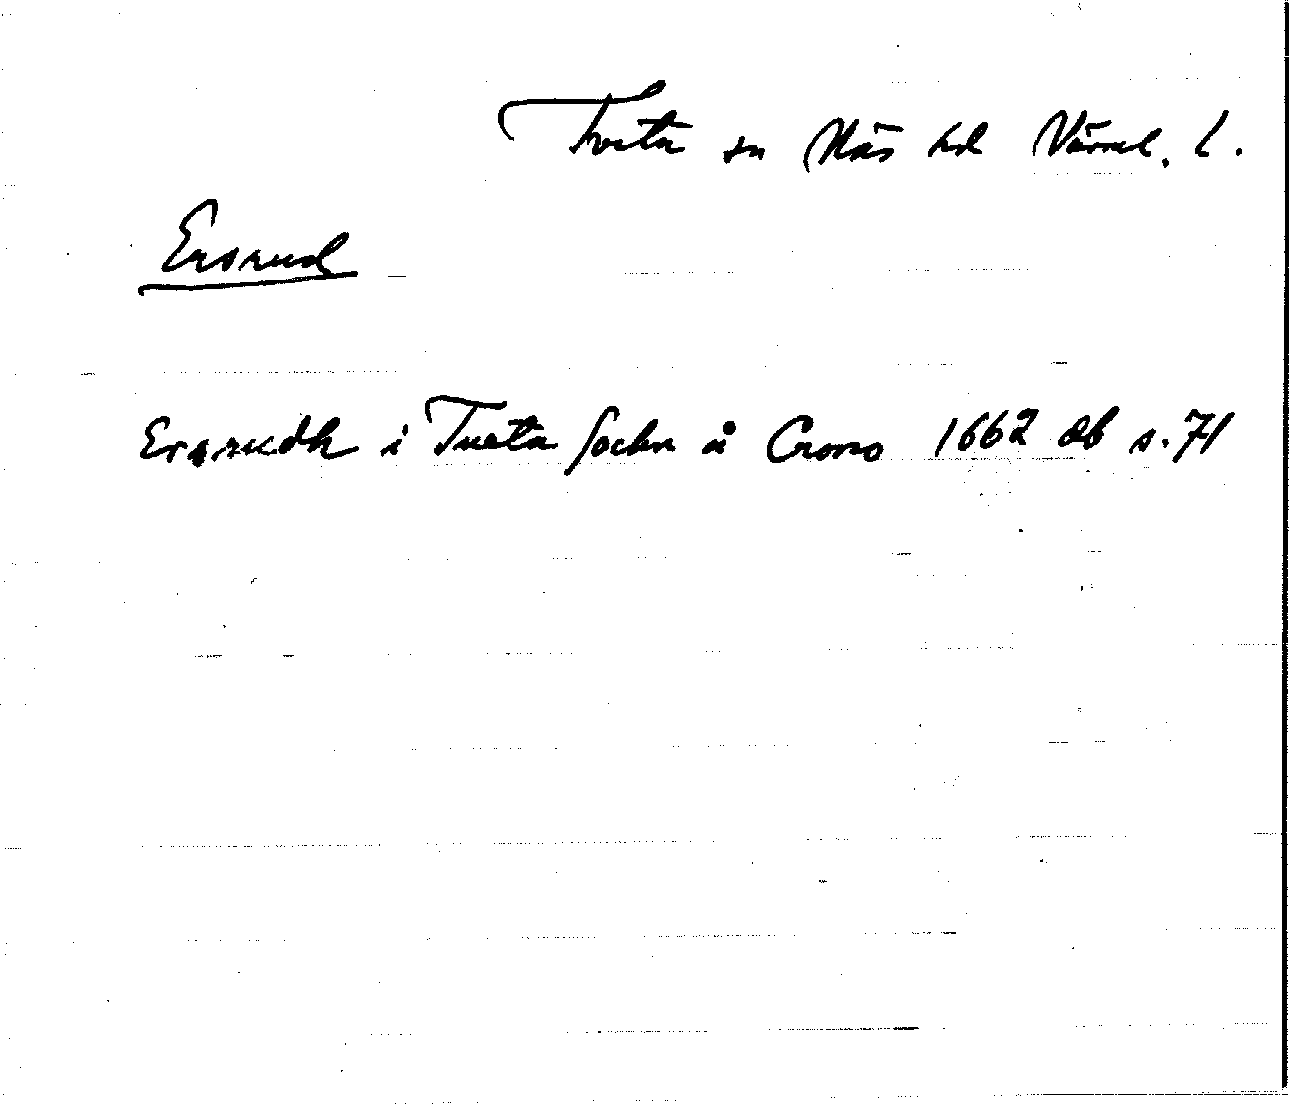 Tveta sn Näs hd Värml. l.
Ersrud
Ersrudh i Tueta sochn å Crono 1662 ÆB s. 71